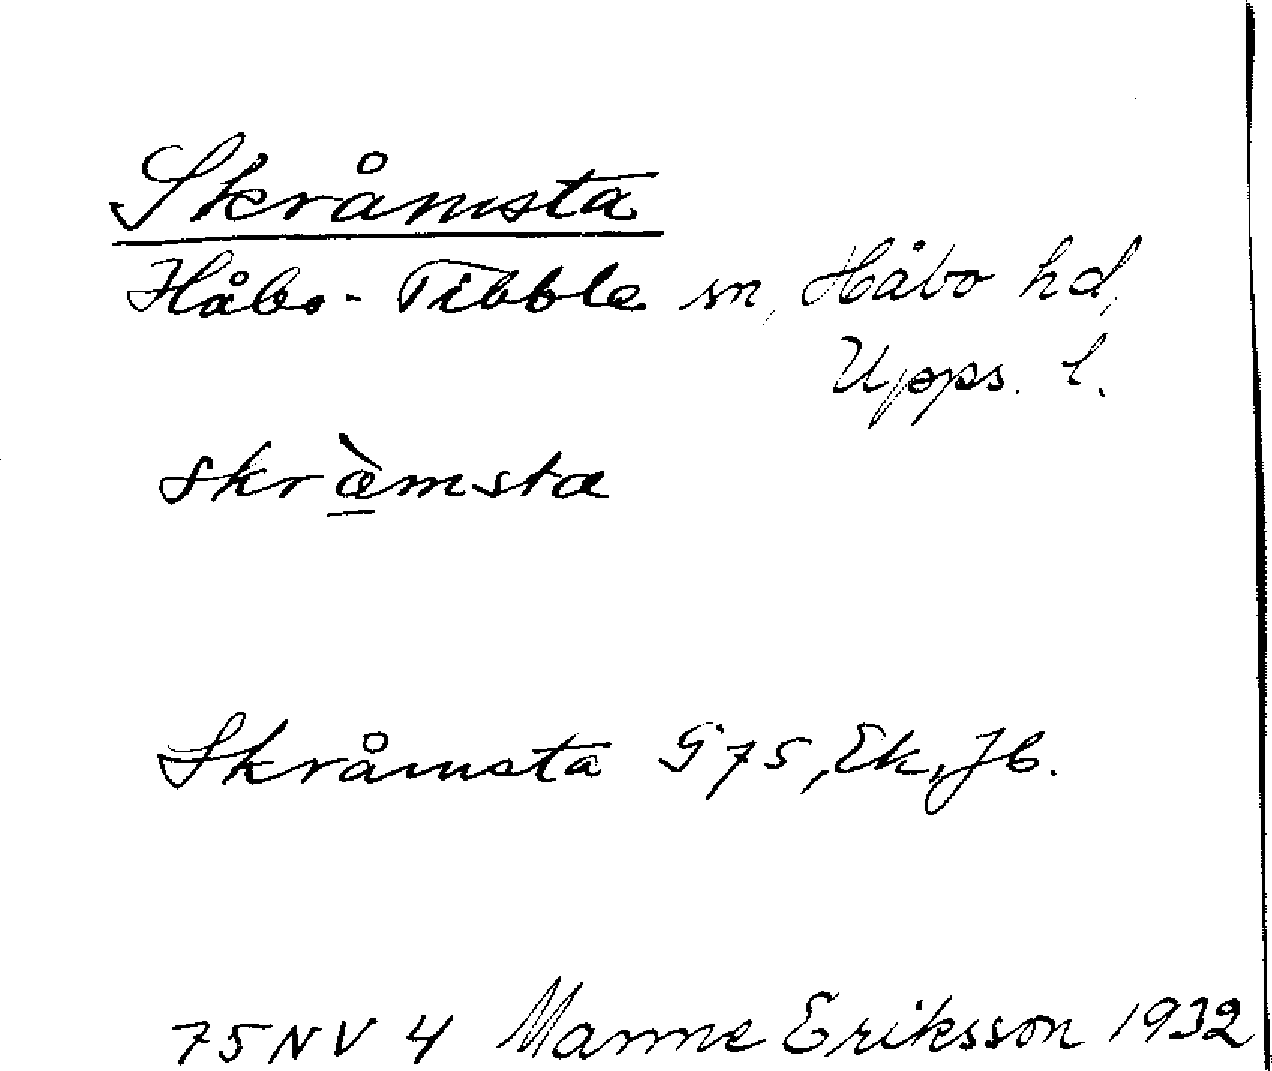 Skråmsta
Håbo-Tibble sn, Håbo hd,
Upps. l.
skræ̀msta
Skråmsta G75, Ek, Jb.
75 NV 4 Manne Eriksson 1932